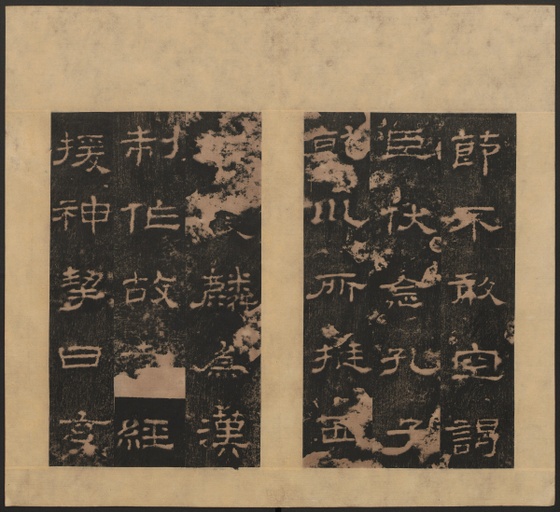 節不敢空謁
臣伏念孔子
乾川所挺西
麟為漢
制作故孝經
援神挈曰玄